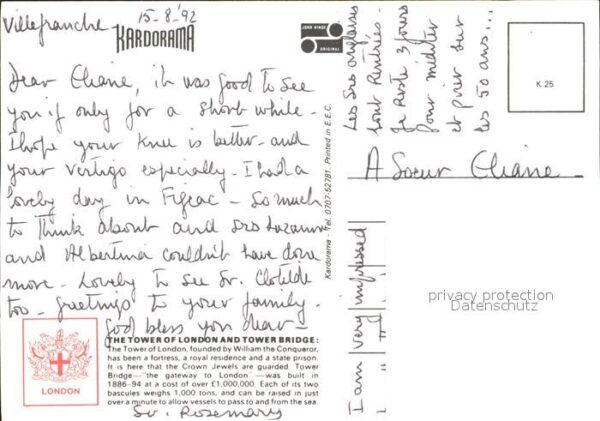 Villefranche 15-8-'92
KARDORAMA
Dear Eliane, it was good to see
you if only for a short while -
I hope your knee is better - and
your vertigo especially - I had a
lovely day in Figeac - so much
to think about and Srs Suzanne
and Albertina couldn't have done
more - Lovely to see Sr. Clotilde
too - greetings to your family -
God bless you dear -
THE TOWER OF LONDON AND TOWER BRIDGE:
The Tower of London, founded by William the Conqueror,
has been a fortress, a royal residence and a state prison.
It is here that the Crown Jewels are guarded. Tower
Bridge—"the gateway to London"—was built in
1886-94 at a cost of over £1,000,000. Each of its two
bascules weighs 1,000 tons, and can be raised in just
over a minute to allow vessels to pass to and from the sea.
Sr. Rosemary
LONDON
Kardorama - Tel. 0707-52781. Printed in E.E.C.
JOHN HINDE
ORIGINAL
Les Srs anglaises
sont rentrées.
Je reste 3 jours
pour méditer
et prier sur
les 50 ans...
K 25
A Soeur Eliane
I am very impressed
privacy protection
Datenschutz